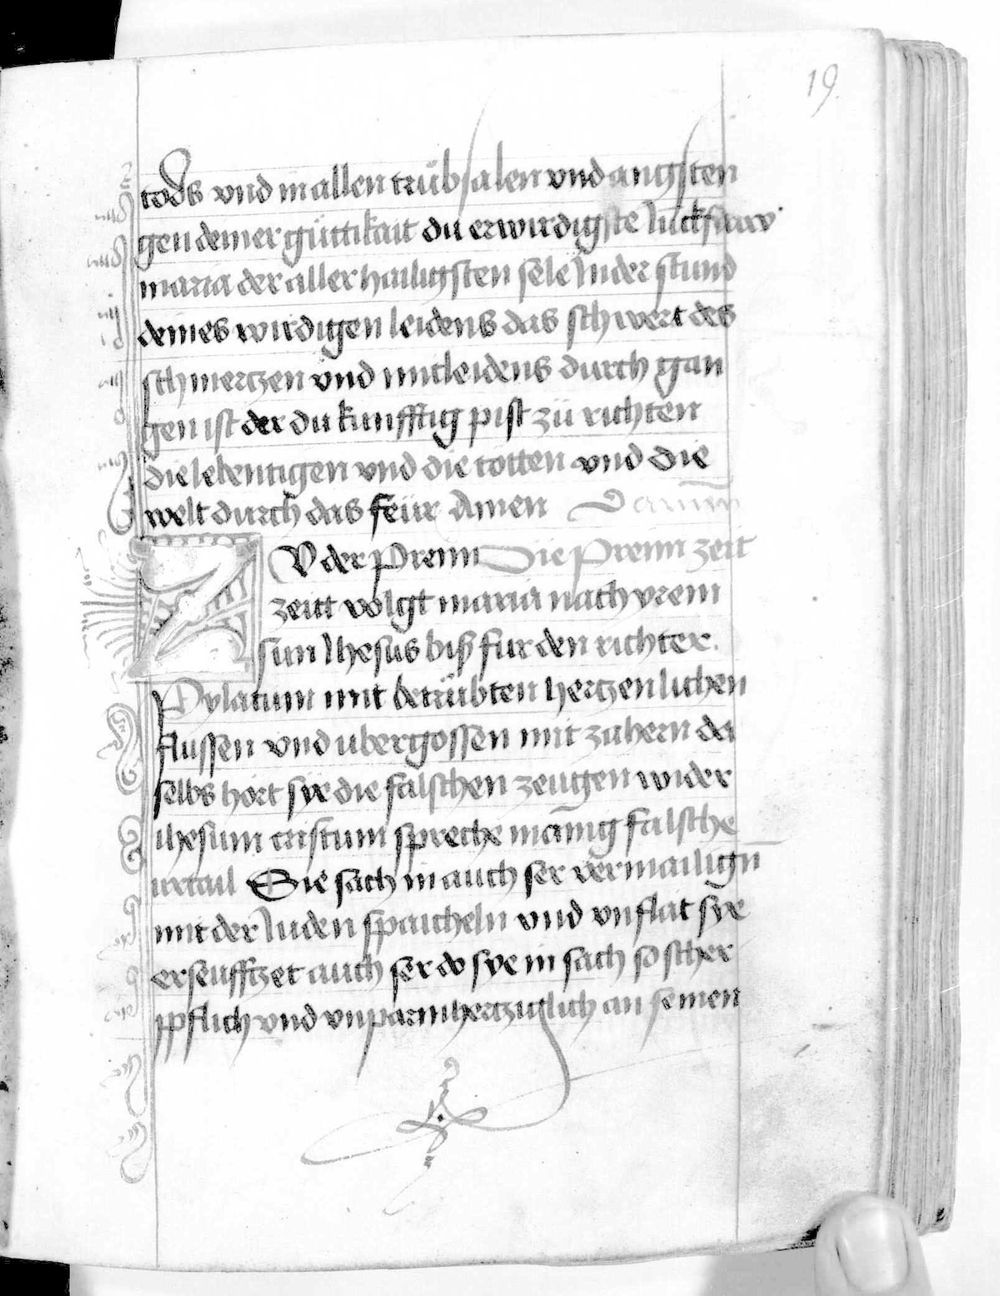 19
tods vnd in allen trübsalen vnd angsten
gen deiner güttikait du erwirdigste Juckfraw
maria der aller hailigsten sele In der stund
deines wirdigen leidens das schwert des
schmertzen vnd mitleidens durch gan
gen ist der du kunfftig pist zü richten
die lebentigen vnd die totten vnd die
welt durch das feür Amen
Zu der Prenn Die Prenn zeit
zeitt volgt maria nach yrem
sun Ihesus biß fur den richter.
Pylatum mit betrübten hertzenlichen
flussen vnd ubergossen mit zähern da
selbs hört sye die falschen zeugen wider
ihesum cristum spreche mānig falsche
urtail Sie sach in auch ser vermailigñ
mit der Juden spaicheln vnd vnflat sye
erseufftzet auch ser do sye in sach so scher
pflich vnd vnparmhertzigklich an seinen